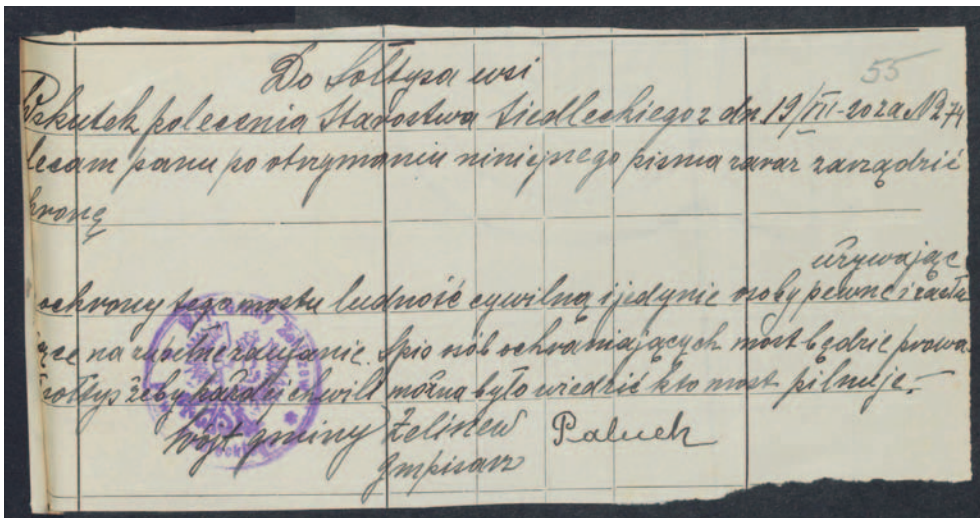 Do Sołtysa wsi
55
Wskutek polecenia Starostwa Siedleckiego z dn. 19/VII-20 za № 274
lecam panu po otrzymaniu niniejszego pisma zaraz zarządzić
hronę
używając
ochrony tego mostu ludność cywilną i jedynie osoby pewne i zasłu
jące na zupełne zaufanie. Spis osób ochraniających most będzie prowa-
sołtys żeby każdej chwili można było wiedzić kto most pilnuje.-
Wójt gminy Żeliszew Paluch
Gmpisarz